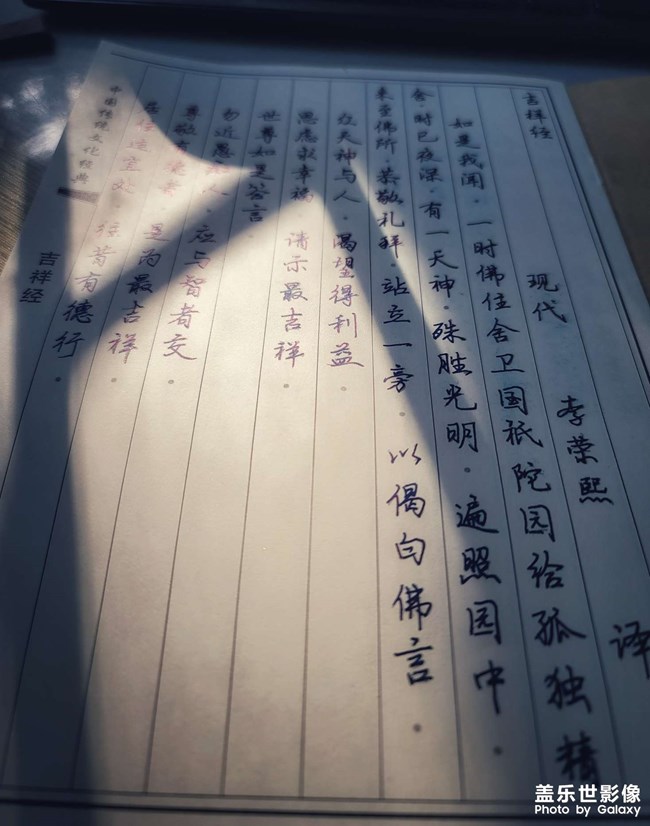 吉祥经
现代 李荣熙 译
如是我闻.一时佛住舍卫国祇陀园给孤独精
舍.时已夜深.有一天神.殊胜光明.遍照园中.
来至佛所.恭敬礼拜.站立一旁.以偈白佛言.
众天神与人.渴望得利益.
思虑求幸福.请示最吉祥.
世尊如是答言.
勿近愚痴人.应与智者交.
尊敬有德者.是为最吉祥.
居住适宜处.往昔有德行.
中国传统文化经典
吉祥经
盖乐世影像
Photo by Galaxy